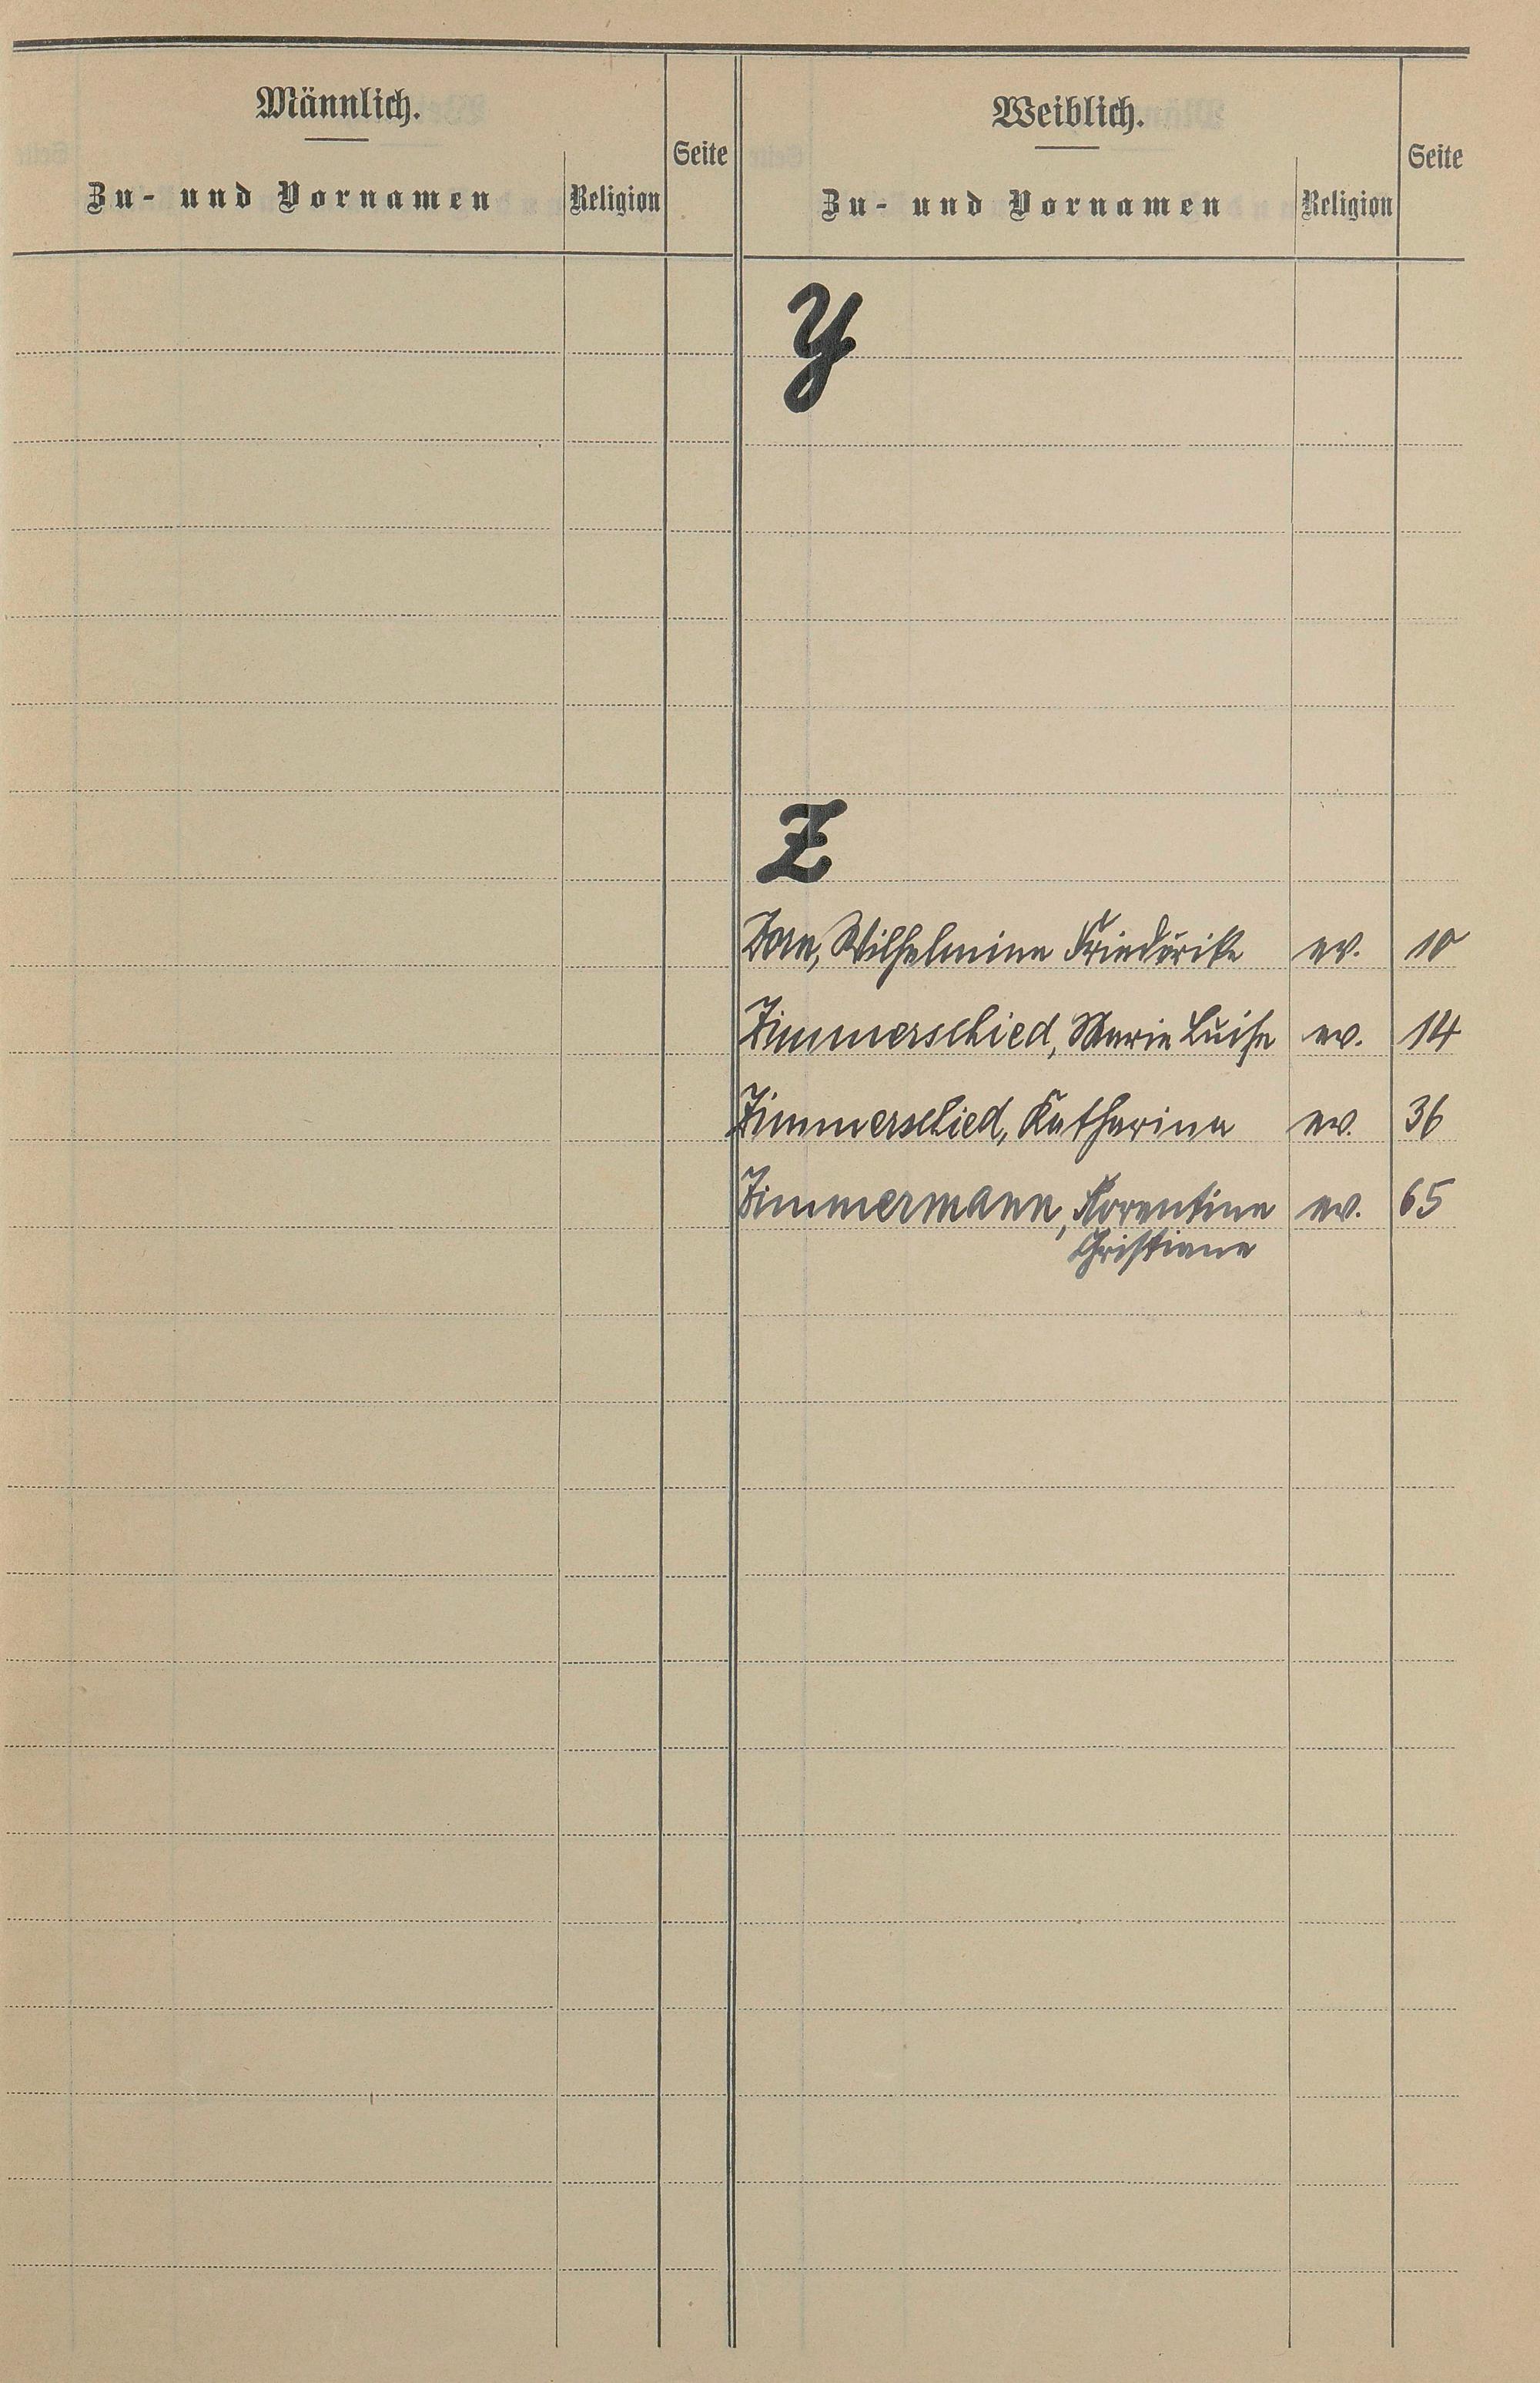 Männlich.
Zu- und Vornamen
Religion
Seite
Weiblich.
Zu- und Vornamen
Religion
Seite
Y
Z
Zorn, Wilhelmine Friederike ev. 10
Zimmerschied, Marie Luise ev. 14
Zimmerschied, Katharina ev. 36
Zimmermann, Florentine ev. 65
Christiane